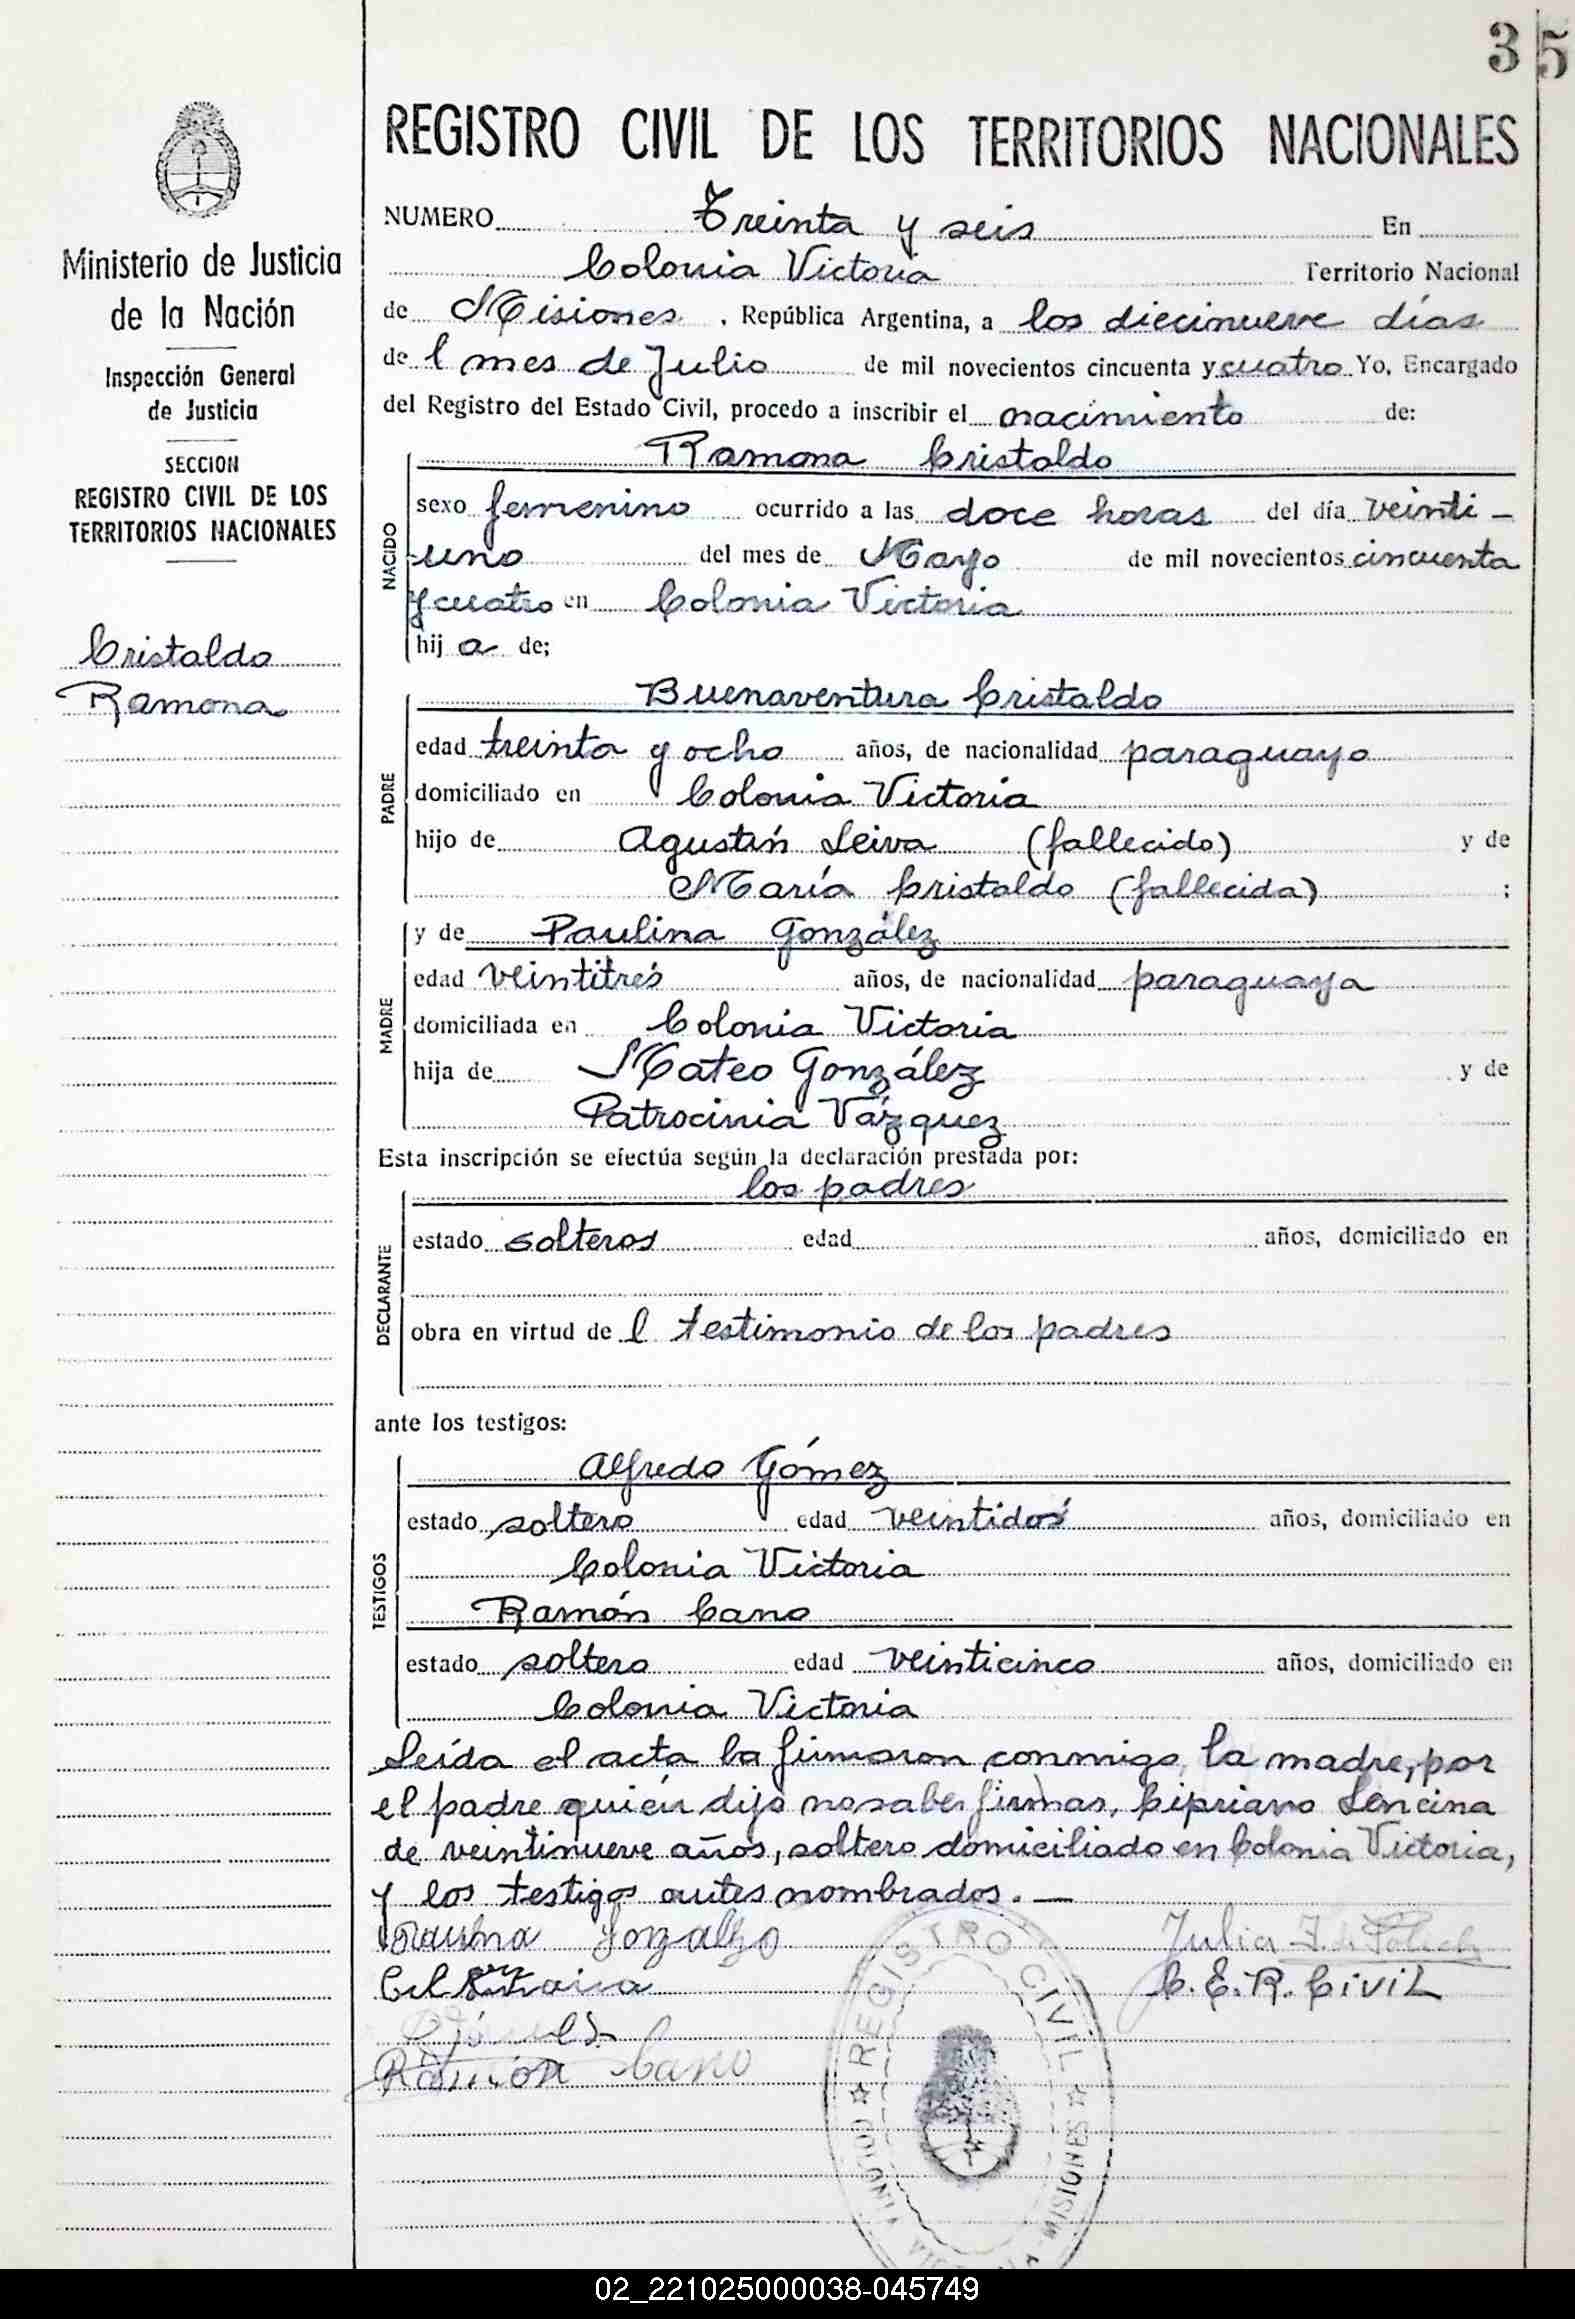 35
REGISTRO CIVIL DE LOS TERRITORIOS NACIONALES
Ministerio de Justicia
de la Nación
Inspección General
de Justicia
SECCION
REGISTRO CIVIL DE LOS
TERRITORIOS NACIONALES
Cristaldo
Ramona
NUMERO Treinta y seis En
Colonia Victoria Territorio Nacional
de Misiones, República Argentina, a los diecinueve días
del mes de Julio de mil novecientos cincuenta y cuatro Yo, Encargado
del Registro del Estado Civil, procedo a inscribir el nacimiento de:
Ramona Cristaldo
NACIDO
sexo femenino ocurrido a las doce horas del día veinti-
uno del mes de Mayo de mil novecientos cincuenta
y cuatro en Colonia Victoria
hija de;
Buenaventura Cristaldo
PADRE
edad treinta y ocho años, de nacionalidad paraguayo
domiciliado en Colonia Victoria
hijo de Agustín Leiva (fallecido) y de
María Cristaldo (fallecida) ;
y de Paulina González
MADRE
edad veintitrés años, de nacionalidad paraguaya
domiciliada en Colonia Victoria
hija de Mateo González y de
Patrocinia Vázquez
Esta inscripción se efectúa según la declaración prestada por:
los padres
DECLARANTE
estado solteros edad años, domiciliado en
obra en virtud del testimonio de los padres
ante los testigos:
Alfredo Gómez
TESTIGOS
estado soltero edad veintidós años, domiciliado en
Colonia Victoria
Ramón Cano
estado soltero edad veinticinco años, domiciliado en
Colonia Victoria
Leída el acta la firmaron conmigo, la madre, por
el padre quién dijo no saber firmar, Cipriano Lencina
de veintinueve años, soltero domiciliado en Colonia Victoria,
y los testigos antes nombrados. —
Julia F. de
C. E. R. CIVIL
Ramón Cano
REGISTRO CIVIL
COLONIA VICTORIA - MISIONES
02_221025000038-045749